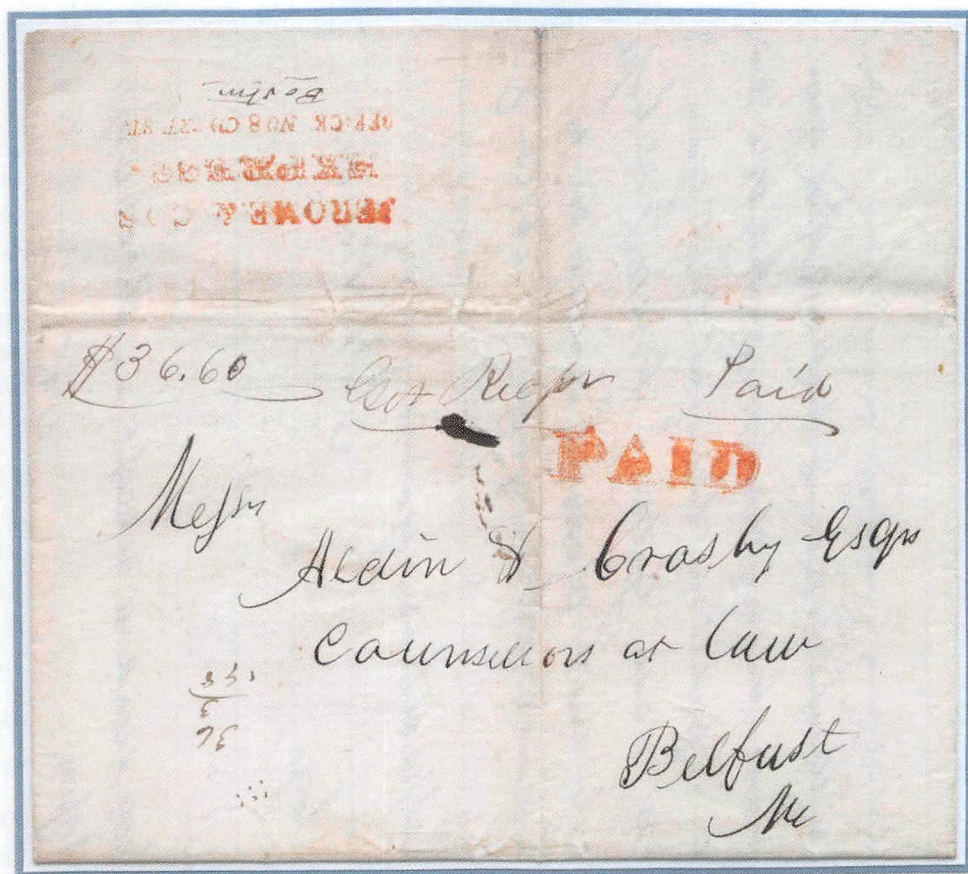 JEROME & CO'S
EXPRESS
OFFICE NO 8 COURT ST.
Boston
$36.60
Paid
PAID
Messrs
Aldin & Crosby Esqrs
Counsellors at law
Belfast
Me
36
3